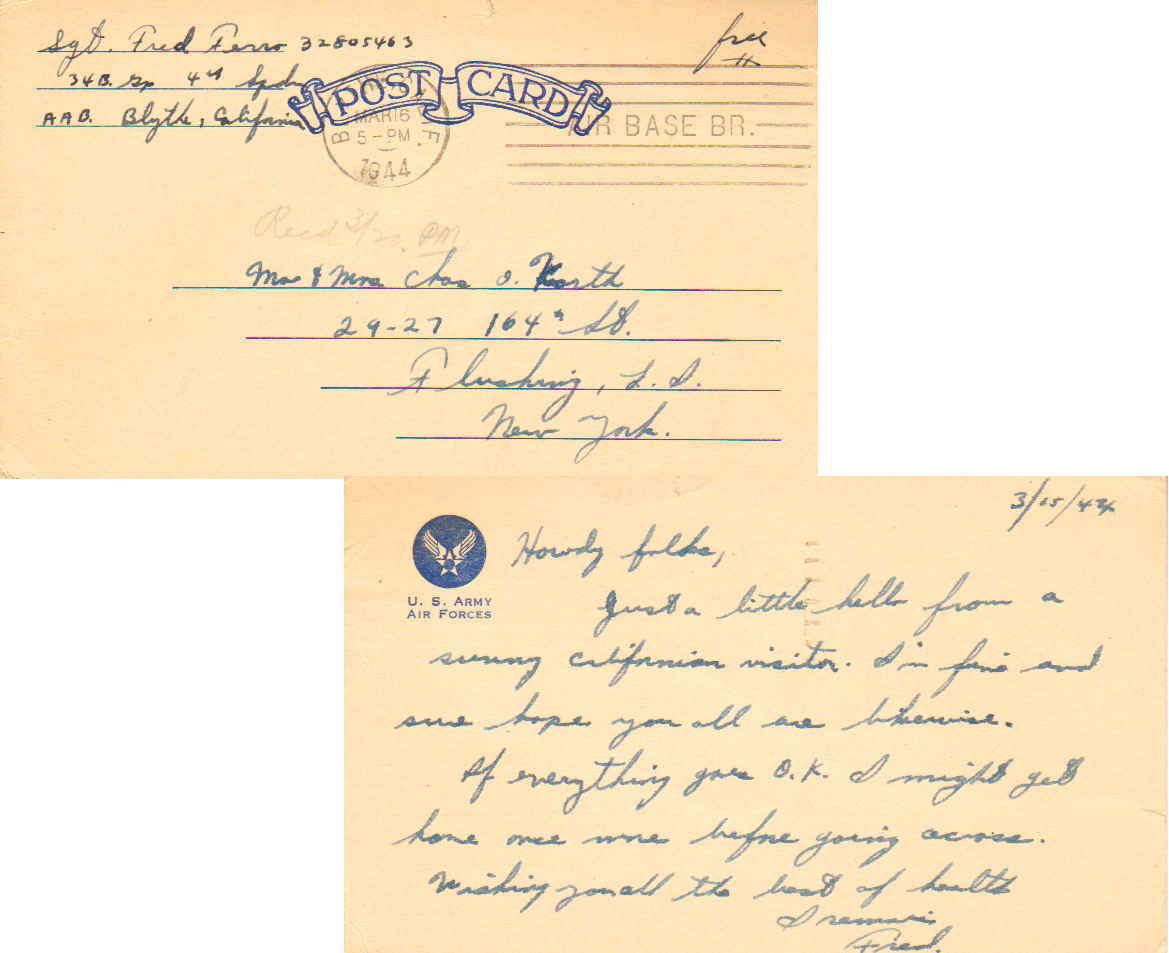 Sgt. Fred Ferro 32805463
free
34 B. Gp 4th Sqdn
POST CARD
A A B. Blythe, California
MAR 16
5 - PM
1944
AIR BASE BR.
Recd 3/20. PM
Mr & Mrs Chas O. Korth
29-27 164th St.
Flushing, L. I.
New York.
3/15/44
U. S. ARMY
AIR FORCES
Howdy folks,
Just a little hello from a
sunny californian visitor. I'm fine and
sure hope you all are likewise.
If everything goes O.K. I might get
home once more before going across.
Wishing you all the best of health
I remain
Fred.